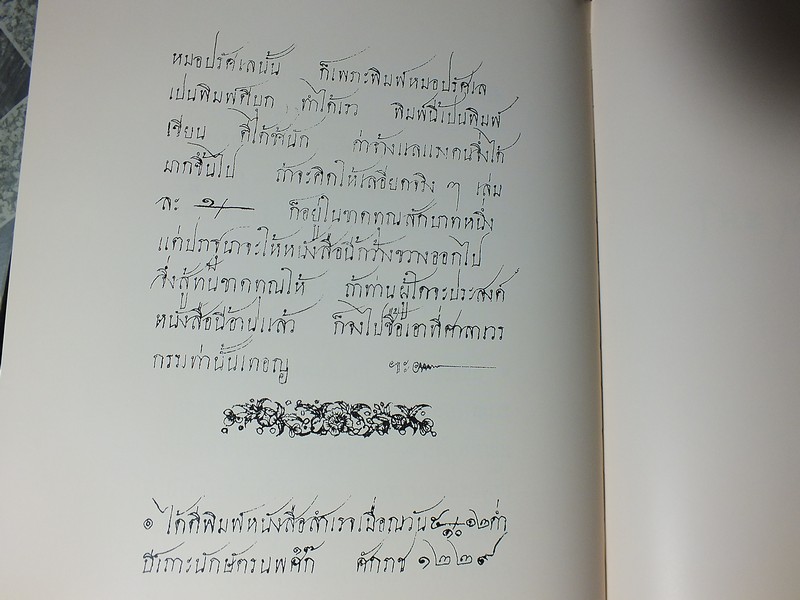 หมอปรัศเลนั้น ก็เพราะพิมพ์หมอปรัศเล
เปนพิมพ์ตีบุก ทำได้เรว พิมพ์นี้เปนพิมพ์
เขียน ตีได้ช้านัก ค่าจ้างแลแรงคนจึ่งได้
มากขึ้นไป ถ้าจะคิดให้เลอียดจริง ๆ เล่ม
ละ ๑/ ก็อยู่ในขาดทุนสักบาทหนึ่ง
แต่ปราฐนาจะให้หนังสือนี้กว้างขวางออกไป
จึ่งสู้ทนขาดทุนให้ ถ้าท่านผู้ใดจะประสงค์
หนังสือนี้อ่านแล้ว ก็จงไปซื้อเอาที่ศาลาวร
กรรเท่านั้นเทอญ ฯะ๛
๏ ได้ตีพิมพ์หนังสือสำเรจเมื่อณวัน ๑๒ค่ำ
๑๐
ปีเถาะนักษัตรนพศก ศักราช ๑๒๒๙